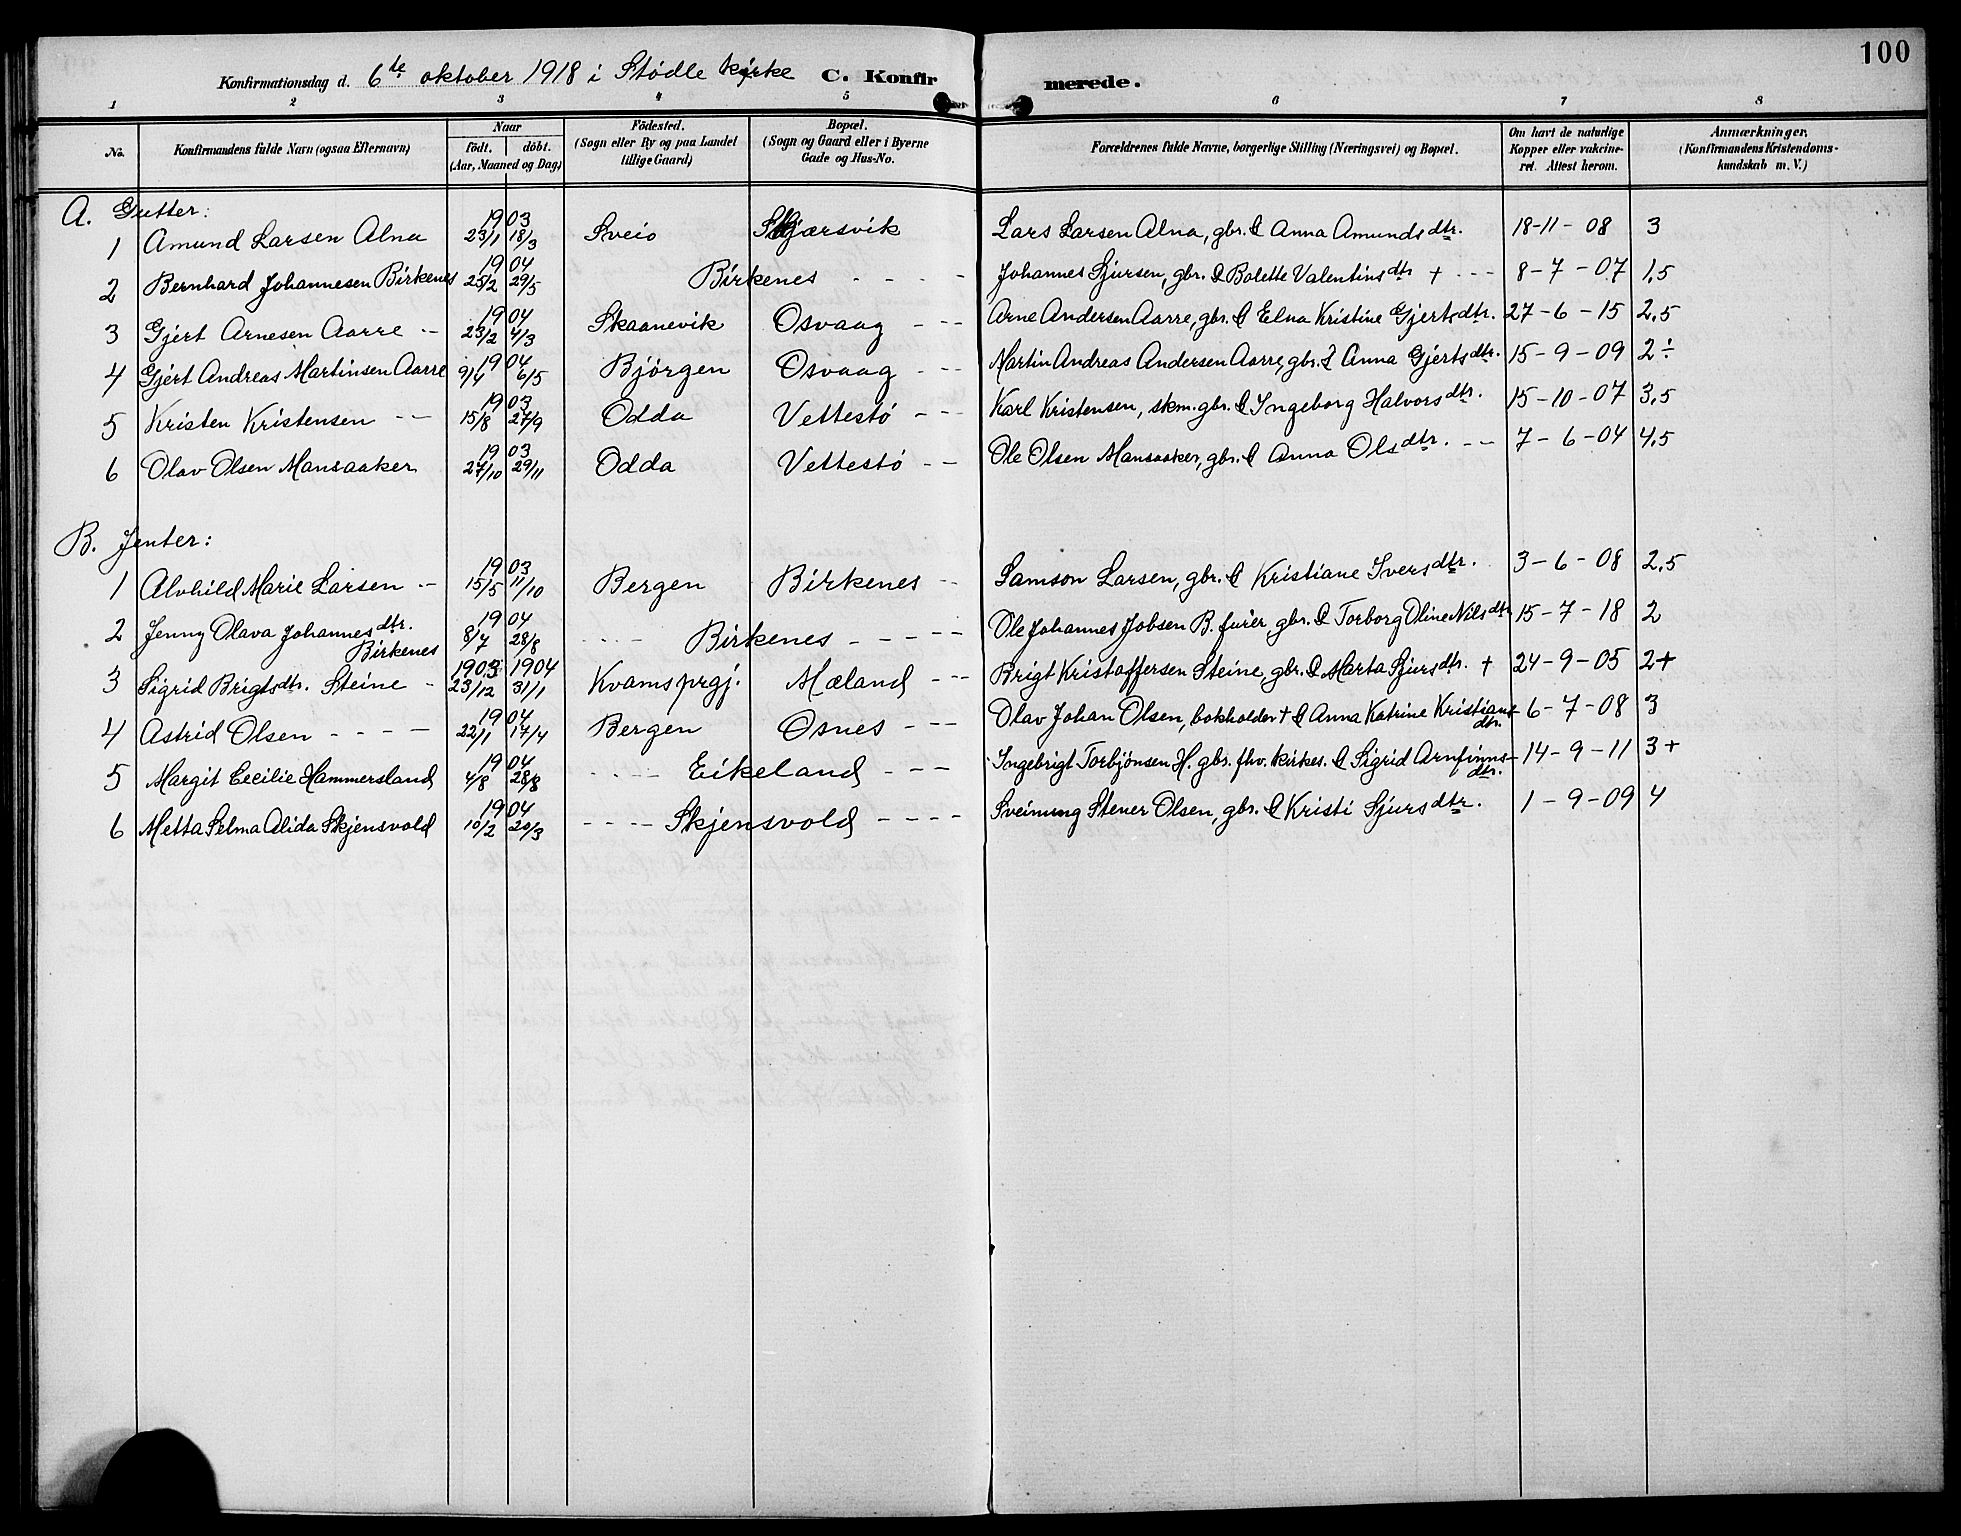 100
Konfirmationsdag d. 6te oktober 1918 i Stødle kirke C. Konfirmerede.
1 2 3 4 5 6 7 8
No. Konfirmandens fulde Navn (ogsaa Efternavn) Naar födt. döbt. (Aar, Maaned og Dag) Födested. (Sogn eller By og paa Landet tillige Gaard) Bopæl. (Sogn og Gaard eller i Byerne Gade og Hus-No. Forældrenes fulde Navne, borgerlige Stilling (Næringsvei) og Bopæl. Om havt de naturlige Kopper eller vakcineret. Attest herom. Anmærkninger. (Konfirmandens Kristendomskundskab m. V.)
A. Gutter:
1 Amund Larsen Alna 1903 23/1 18/3 Sveio Skjærsvik Lars Larsen Alna, gbr. & Anna Amundsdtr. 18-11-08 3
2 Bernhard Johannesen Birkenes 1904 25/2 29/5 Birkenes - - - - Johannes Sjursen, gbr. & Bolette Valentinsdtr + - - - 8-7-07 1,5
3 Gjert Arnesen Aarre - - 1904 23/2 4/3 Skaanevik Osvaag - - - Arne Andersen Aarre, gbr. & Elna Kristine Gjertsdtr. 27-6-15 2,5
4 Gjert Andreas Martinsen Aarre 1904 9/4 6/5 Bjørgen Osvaag - - - Martin Andreas Andersen Aarre, gbr. & Anna Gjertsdtr. 15-9-09 2÷
5 Kristen Kristensen - - 1903 15/8 27/9 Odda Vettestø - - - Karl Kristensen, skm. gbr. & Ingeborg Halvorsdtr. 15-10-07 3,5
6 Olav Olsen Mansaaker 1903 27/10 29/11 Odda Vettestø - - Ole Olsen Mansaaker, gbr. & Anna Olsdtr. - - 7-6-04 4,5
B. Jenter:
1 Alvhild Marie Larsen - 1903 15/5 11/10 Bergen Birkenes - - Samson Larsen, gbr. & Kristiane Iversdtr. 3-6-08 2,5
2 Jenny Olava Johannesdtr. 1904 8/7 28/8 - - - - Birkenes - - - - - Ole Johannes Jobsen B. furer, gbr. & Torborg Oline Nilsdtr 15-7-18 2
Birkenes
3 Sigrid Brigtsdtr. Steine - 1903 23/12 1904 31/1 Kvams prgj. Mæland - - - Brigt Kristaffersen Steine, gbr. & Marta Sjursdtr. + 24-9-05 2+
4 Astrid Olsen - - - - 1904 22/1 17/4 Bergen Osnes - - - Olav Johan Olsen, bokholder + & Anna Katrine Kristians- 6-7-08 3
dtr.
5 Margit Cecilie Hammersland 1904 4/8 28/8 - - - - Eikeland - - - Ingebrigt Torbjönsen H. gbr. fhv. kirkes. & Sigrid Arnfinns- 14-9-11 3+
dtr.
6 Metta Selma Alida Skjensvold 1904 10/2 20/3 - - - - Skjensvold - - - - Sveinung Stener Olsen, gbr. & Kristi Sjursdtr. 1-9-09 4